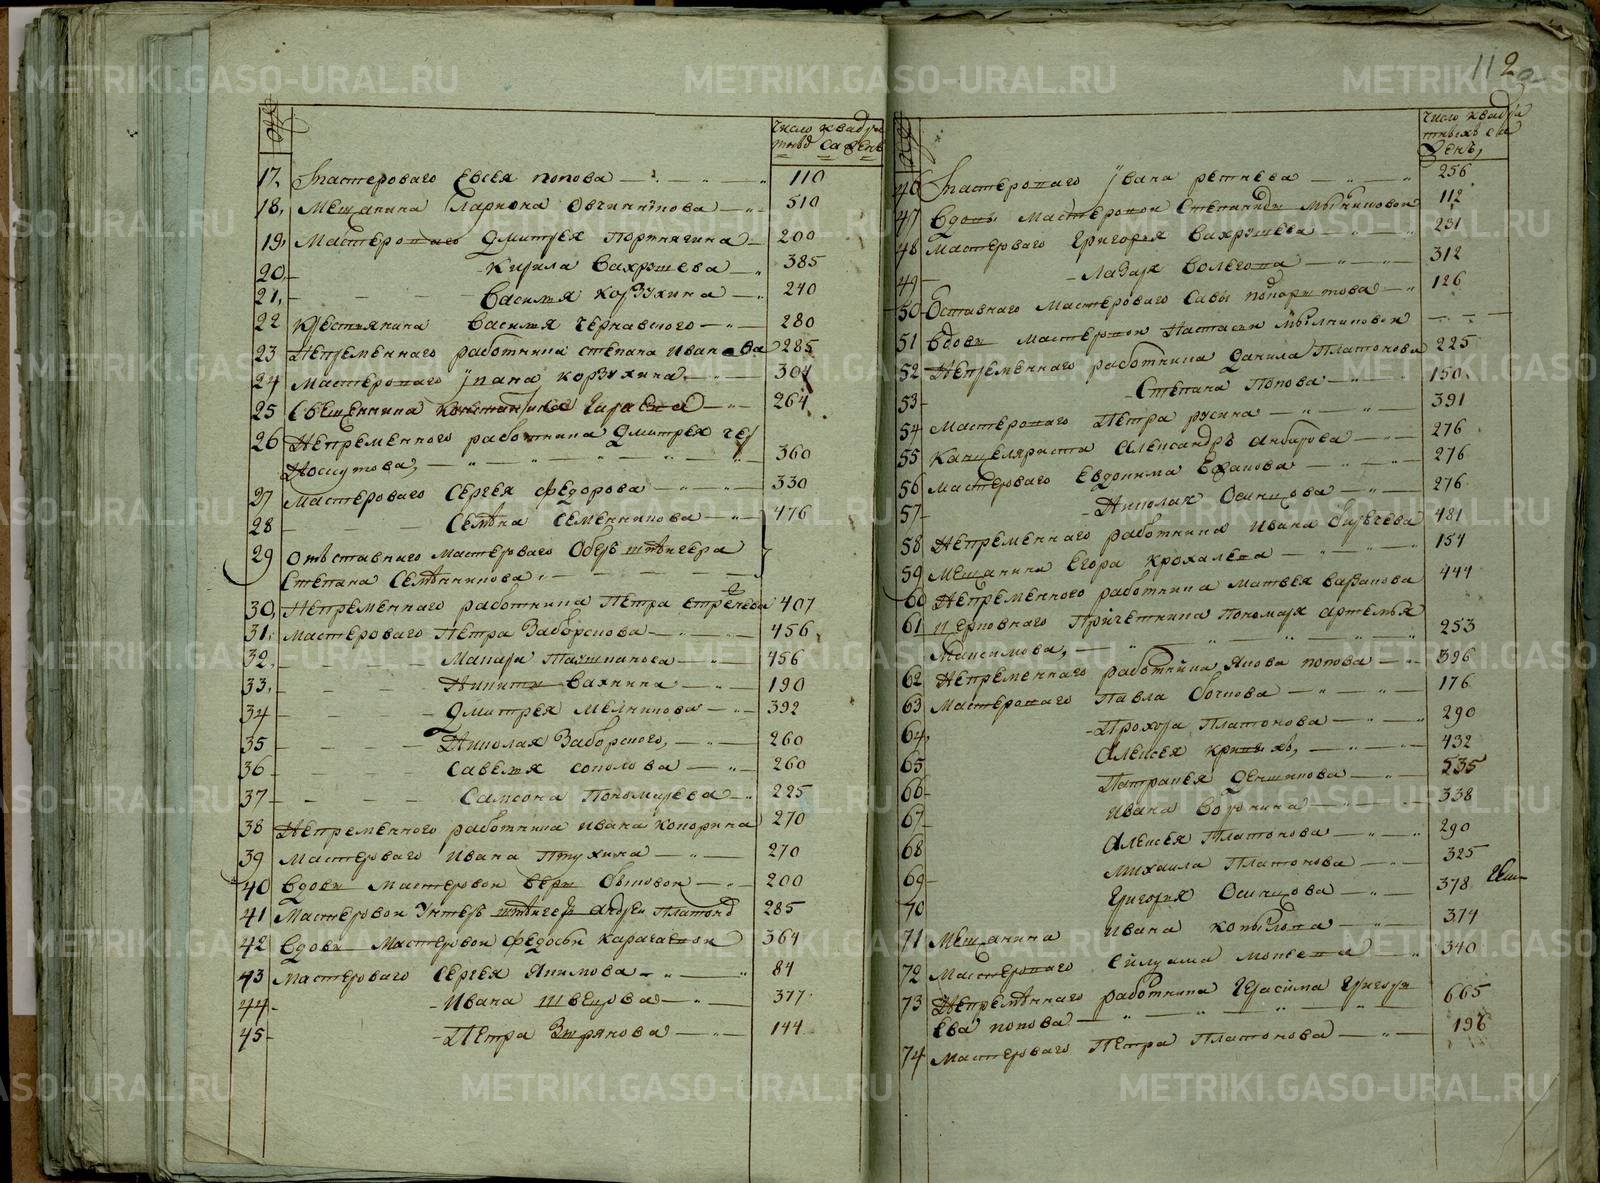 112
№
Число квадра
тныхъ саженъ
17. Мастероваго Евсея Попова 110
18. Мещанина Лариона Овчинникова 510
19. Мастероваго Дмитрея Портнягина 200
20. Кирила Вахрушева 385
21. Василья Корзухина 240
22 Крестьянина Василья Чернавского 280
23 Непременнаго работника Степана Иванова 285
24 Мастероваго Ивана Корзухина 304
25 Священника Константина 264
26 Непременного работника Дмитрея Чер
Носкутова, 360
27 Мастероваго Сергея Федорова 330
28 Семена Семенникова 476
29 Отставнаго Мастероваго Оберъ штейгера
Степана Семянникова
30. Непременнаго работника Петра Стрелева 407
31. Мастероваго Петра Заборскова 456
32. Макара Ташланова 456
33. Никиты Вахнина 190
34 Дмитрея Мелникова 392
35 Николая Заборского, 260
36 Савелья Соколова 260
37 Самсона Пономарева 225
38 Непременного работника Ивана Копорина 270
39 Мастероваго Ивана Птухина 270
40 Вдовы Мастеровой Веры Обытовой 200
41 Мастеровой Унтеръ штейгеръ Андрей Платонов 285
42 Вдовы Мастеровой Федосьи Карагаевой 364
43 Мастероваго Сергея Якимова 84
44 Ивана Швецова 377
45 Петра Зырянова 144
№
Число квадра
тныхъ са
женъ,
46 Мастероваго Ивана Ретнева 256
47 Вдовы Мастеровой Степаниды Мыльниковой 112
48 Мастероваго Григорья Вахрушева 231
49 Лазаря Волегова 312
50 Отставнаго Мастероваго Савы 126
51 Вдовы Мастеровой Настасьи Мыльниковой
52 Непременнаго работника Данила Платонова 225
53 Степана Попова 150
54 Мастероваго Петра Русина 391
55 Канцеляриста Александръ Анбарова 276
56 Мастероваго Евдокима Ефанова 276
57 Николая Осинцова 276
58 Непременного работника Ивана Бирючева 481
59 Мещанина Егора Крохалева 154
60 Непременного работника Матвея Вазанова 444
61 Церковнаго Причетника Пономаря Артемья
Максимова, 253
62 Непременнаго работника Якова Попова 396
63 Мастероваго Павла Бочкова 176
64, Прохора Платонова 290
65 Алексея Кривыхъ, 432
66 Патракея Денщикова 235
67 Ивана Воронина 338
68 Алексея Платонова 290
69 Михаила Платонова 325
70 Григорья Осинцова 378
71 Мещанина Ивана Копылова 374
72 Мастероваго Силуяма Мокеева 340
73 Непременнаго работника Герасима Григорь
ева Попова 665
74 Мастероваго Петра Платонова 196
METRIKI.GASO-URAL.RU